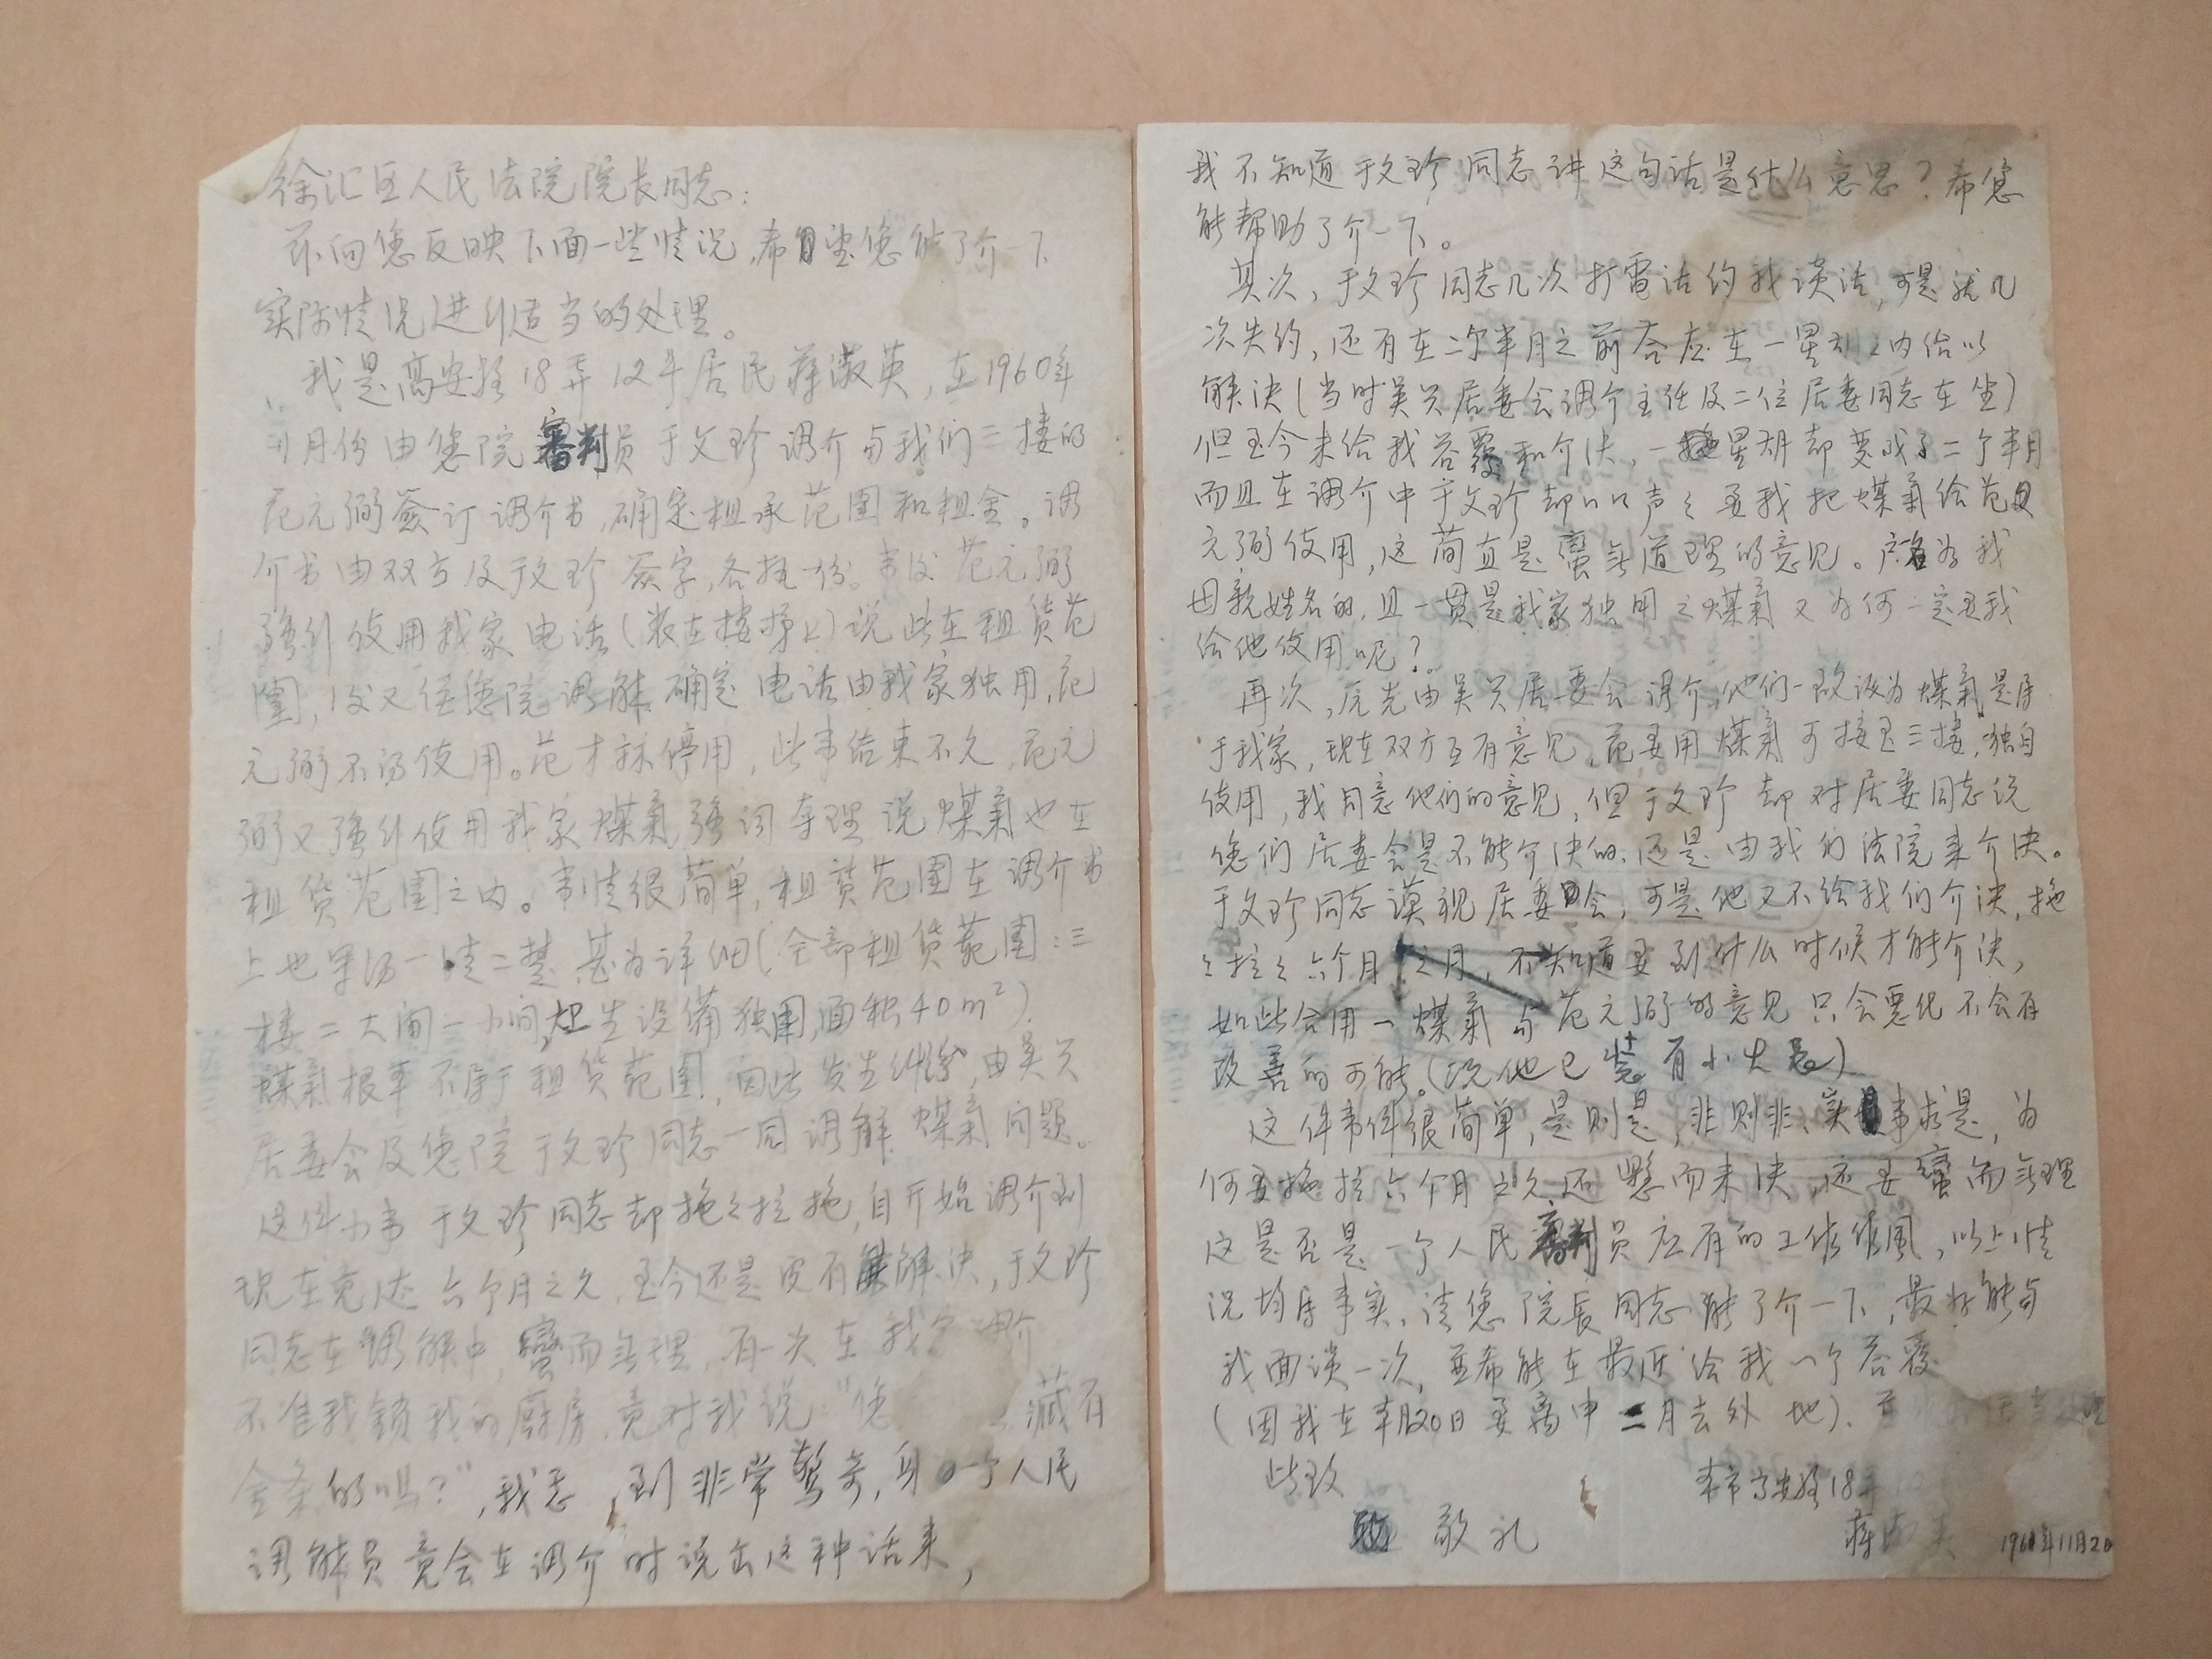 徐汇区人民法院院长同志:
兹向您反映下面一些情况,希望您能了介一下
实际情况进行适当的处理。
我是高安路18弄12号居民蒋淑英,在1960年
月份由您院審判员于文珍调介与我们三楼的
范元弼签订调介书,确定租承范围和租金。调
介书由双方及于文珍签字,各执一份。事后范元弼
强行使用我家电话(装在楼梯上)说此在租赁范
围,后又经您院调解确定电话由我家独用,范
元弼不得使用。范才停用,此事结束不久,范元
弼又强行使用我家煤氣,强词夺理说煤氣也在
租赁范围之内。事情很简单,租赁范围在调介书
上也写得一清二楚,甚为详细(全部租赁范围:三
楼二大间一小间,卫生设備独用,面积40m²)
煤氣根本不属于租赁范围,因此发生纠纷,由吴兴
居委会及您院于文珍同志一同调解煤氣问题。
这件小事于文珍同志却拖々拉拖,自开始调介到
现在竟达六个月之久,至今还是没有解决,于文珍
同志在调解中,蛮而無理,有一次在我
不准我锁我的厨房,竟对我说"您 藏有
金条的吗?",我 到非常驚奇,身 一个人民
调解员竟会在调介时说出这种话来,
我不知道于文珍同志讲这句话是什么意思?希您
能帮助了介一下。
其次,于文珍同志几次打電话约我谈话,可是就几
次失约,还有在二个半月之前答应在一星期之内给以
解决(当时吴兴居委会调介主任及二位居委同志在坐)
但至今未给我答覆和介决,一星期却变成了二个半月
而且在调介中于文珍却口口声々要我把煤氣给范
元弼使用,这简直是蛮無道理的意见。户名为我
母親姓名的,且一贯是我家独用之煤氣又为何一定要我
给他使用呢?
再次,原先由吴兴居委会调介,他们一致认为煤氣是属
于我家,现在双方互有意见,范要用煤氣可接至三楼,独自
使用,我同意他们的意见,但于文珍却对居委同志说
您们居委会是不能介决的,还是由我们法院来介决。
于文珍同志漠视居委会,可是他又不给我们介决,拖
々拉々六个月之月,不知道要到什么时候才能介决,
如此合用一煤氣与范元弼的意见只会惡化不会有
改善的可能。(况他已 有小火 )
这件事件很简单,是则是,非则非,实事求是,为
何要拖拉六个月之久还懸而未决,还要蛮而無理
这是否是一个人民審判员应有的工作作風,以上情
况均属事实,请您院长同志能了介一下,最好能与
我面谈一次,并希能在最近给我一个答覆
(因我在本月20日要离申二月去外地)。
此致
敬礼
本市高安路18弄
蒋淑英 1961年11月2日